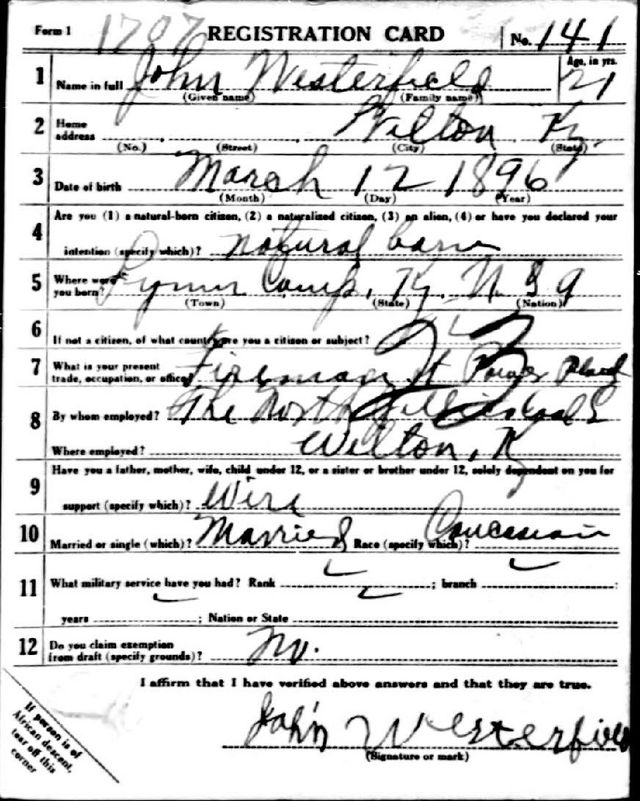 Form 1 1797 REGISTRATION CARD No. 141
1 Name in full John Westerfield Age, in yrs. 21
(Given name) (Family name)
2 Home address Wilton Ky.
(No.) (Street) (City) (State)
3 Date of birth March 12 1896
(Month) (Day) (Year)
4 Are you (1) a natural-born citizen, (2) a naturalized citizen, (3) an alien, (4) or have you declared your
intention (specify which)? natural born
5 Where were you born? Lynn Camp, Ky. U S A
(Town) (State) (Nation)
6 If not a citizen, of what country are you a citizen or subject?
7 What is your present trade, occupation, or office? Fireman at Power Plant
8 By whom employed? The North
Where employed? Wilton, Ky
9 Have you a father, mother, wife, child under 12, or a sister or brother under 12, solely dependent on you for
support (specify which)? Wife
10 Married or single (which)? Married Race (specify which)? Caucasian
11 What military service have you had? Rank ; branch ;
years ; Nation or State
12 Do you claim exemption from draft (specify grounds)? No.
I affirm that I have verified above answers and that they are true.
John Westerfield
(Signature or mark)
If person is of
African descent,
tear off this
corner